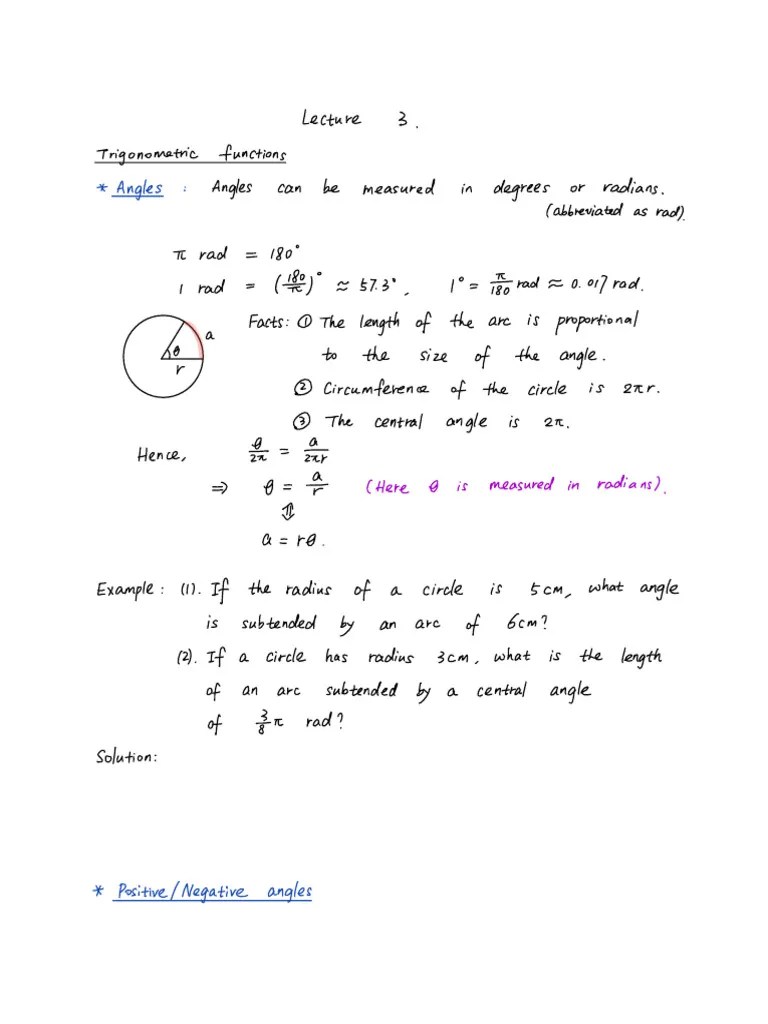 Lecture 3.
Trigonometric functions
* Angles : Angles can be measured in degrees or radians.
(abbreviated as rad).
π rad = 180°
1 rad = (180/π)° ≈ 57.3°, 1° = π/180 rad ≈ 0.017 rad.
Facts: ① The length of the arc is proportional
a
θ
to the size of the angle.
r
② Circumference of the circle is 2πr.
③ The central angle is 2π.
Hence, θ/2π = a/2πr
⇒ θ = a/r (Here θ is measured in radians).
⇕
a = rθ.
Example: (1). If the radius of a circle is 5cm, what angle
is subtended by an arc of 6cm?
(2). If a circle has radius 3cm, what is the length
of an arc subtended by a central angle
of 3/8 π rad?
Solution:
* Positive/Negative angles